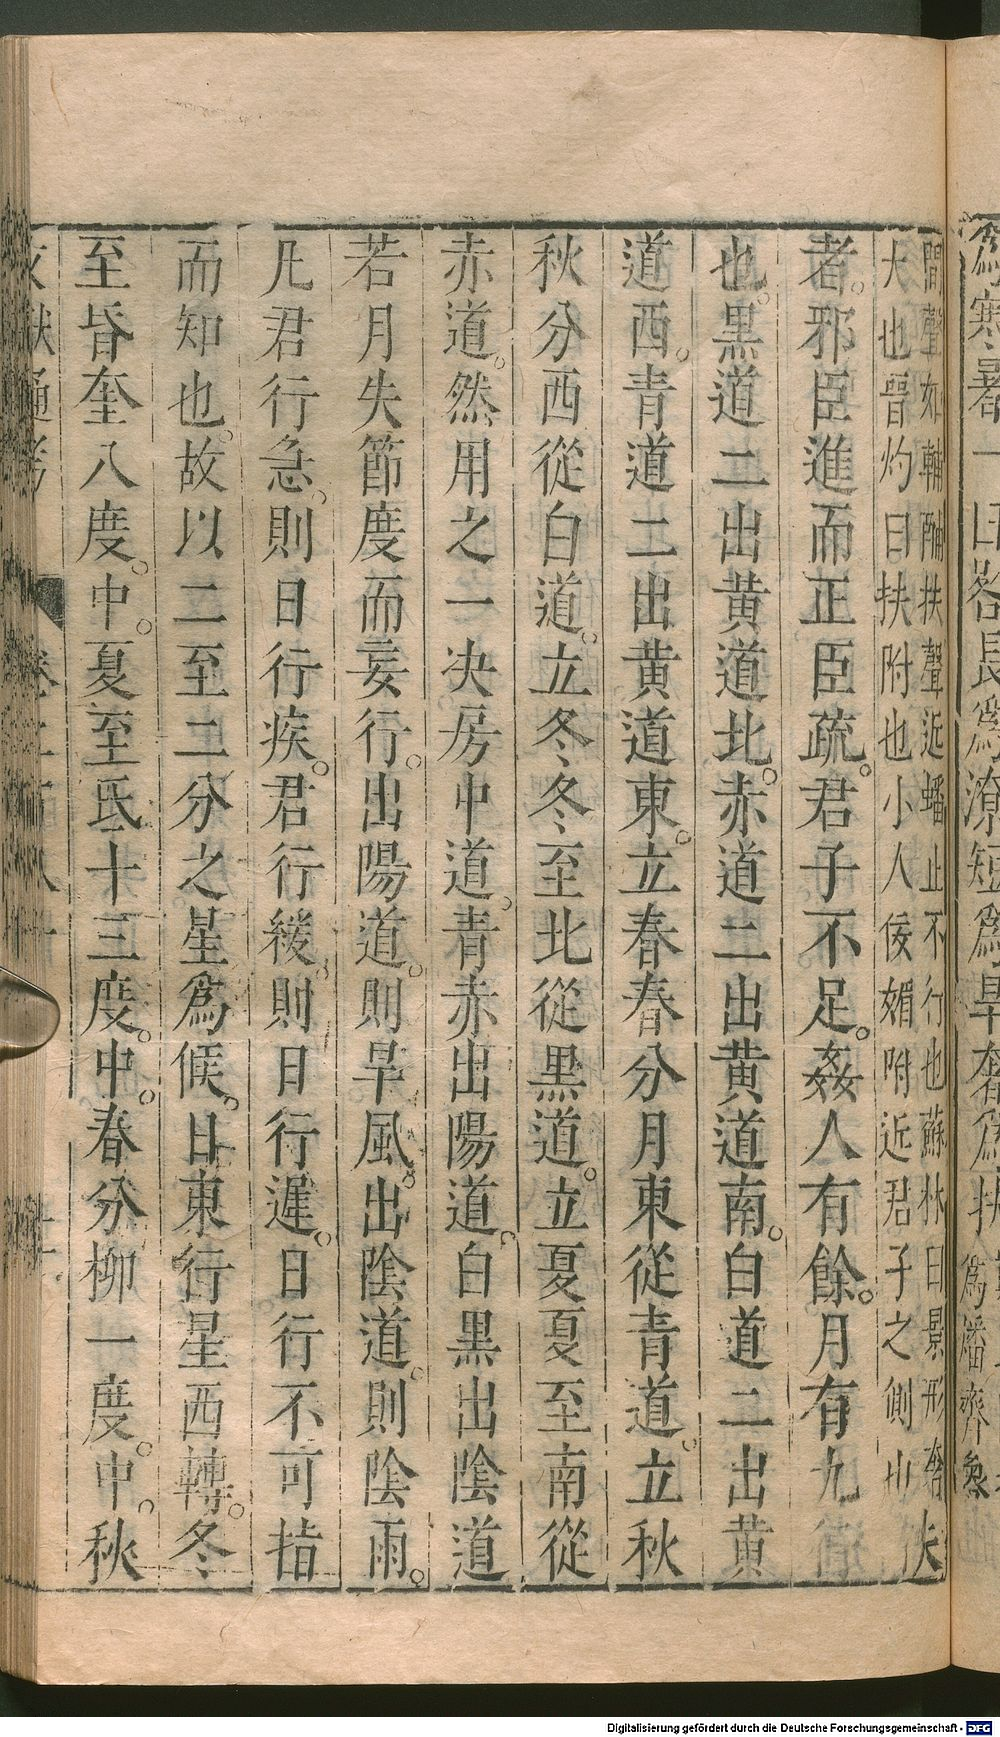 間聲如輔酺扶聲近蟠止不行也蘇林曰景形奢
大也晉灼曰扶附也小人佞媚附近君子之側也
夫
者邪臣進而正臣疏君子不足姦人有餘月有九
也黒道二出黄道北赤道二出黄道南白道二出黄
道西青道二出黄道東立春春分月東從青道立秋
秋分西從白道立冬冬至北從黒道立夏夏至南從
赤道然用之一决房中道青赤出陽道白黒出陰道
若月失節度而妄行出陽道則旱風出陰道則陰雨
凡君行急則日行疾君行緩則日行遲日行不可指
而知也故以二至二分之星爲候日東行星西轉冬
至昏奎八度中夏至氐十三度中春分柳一度中秋
Digitalisierung gefördert durch die Deutsche Forschungsgemeinschaft - DFG